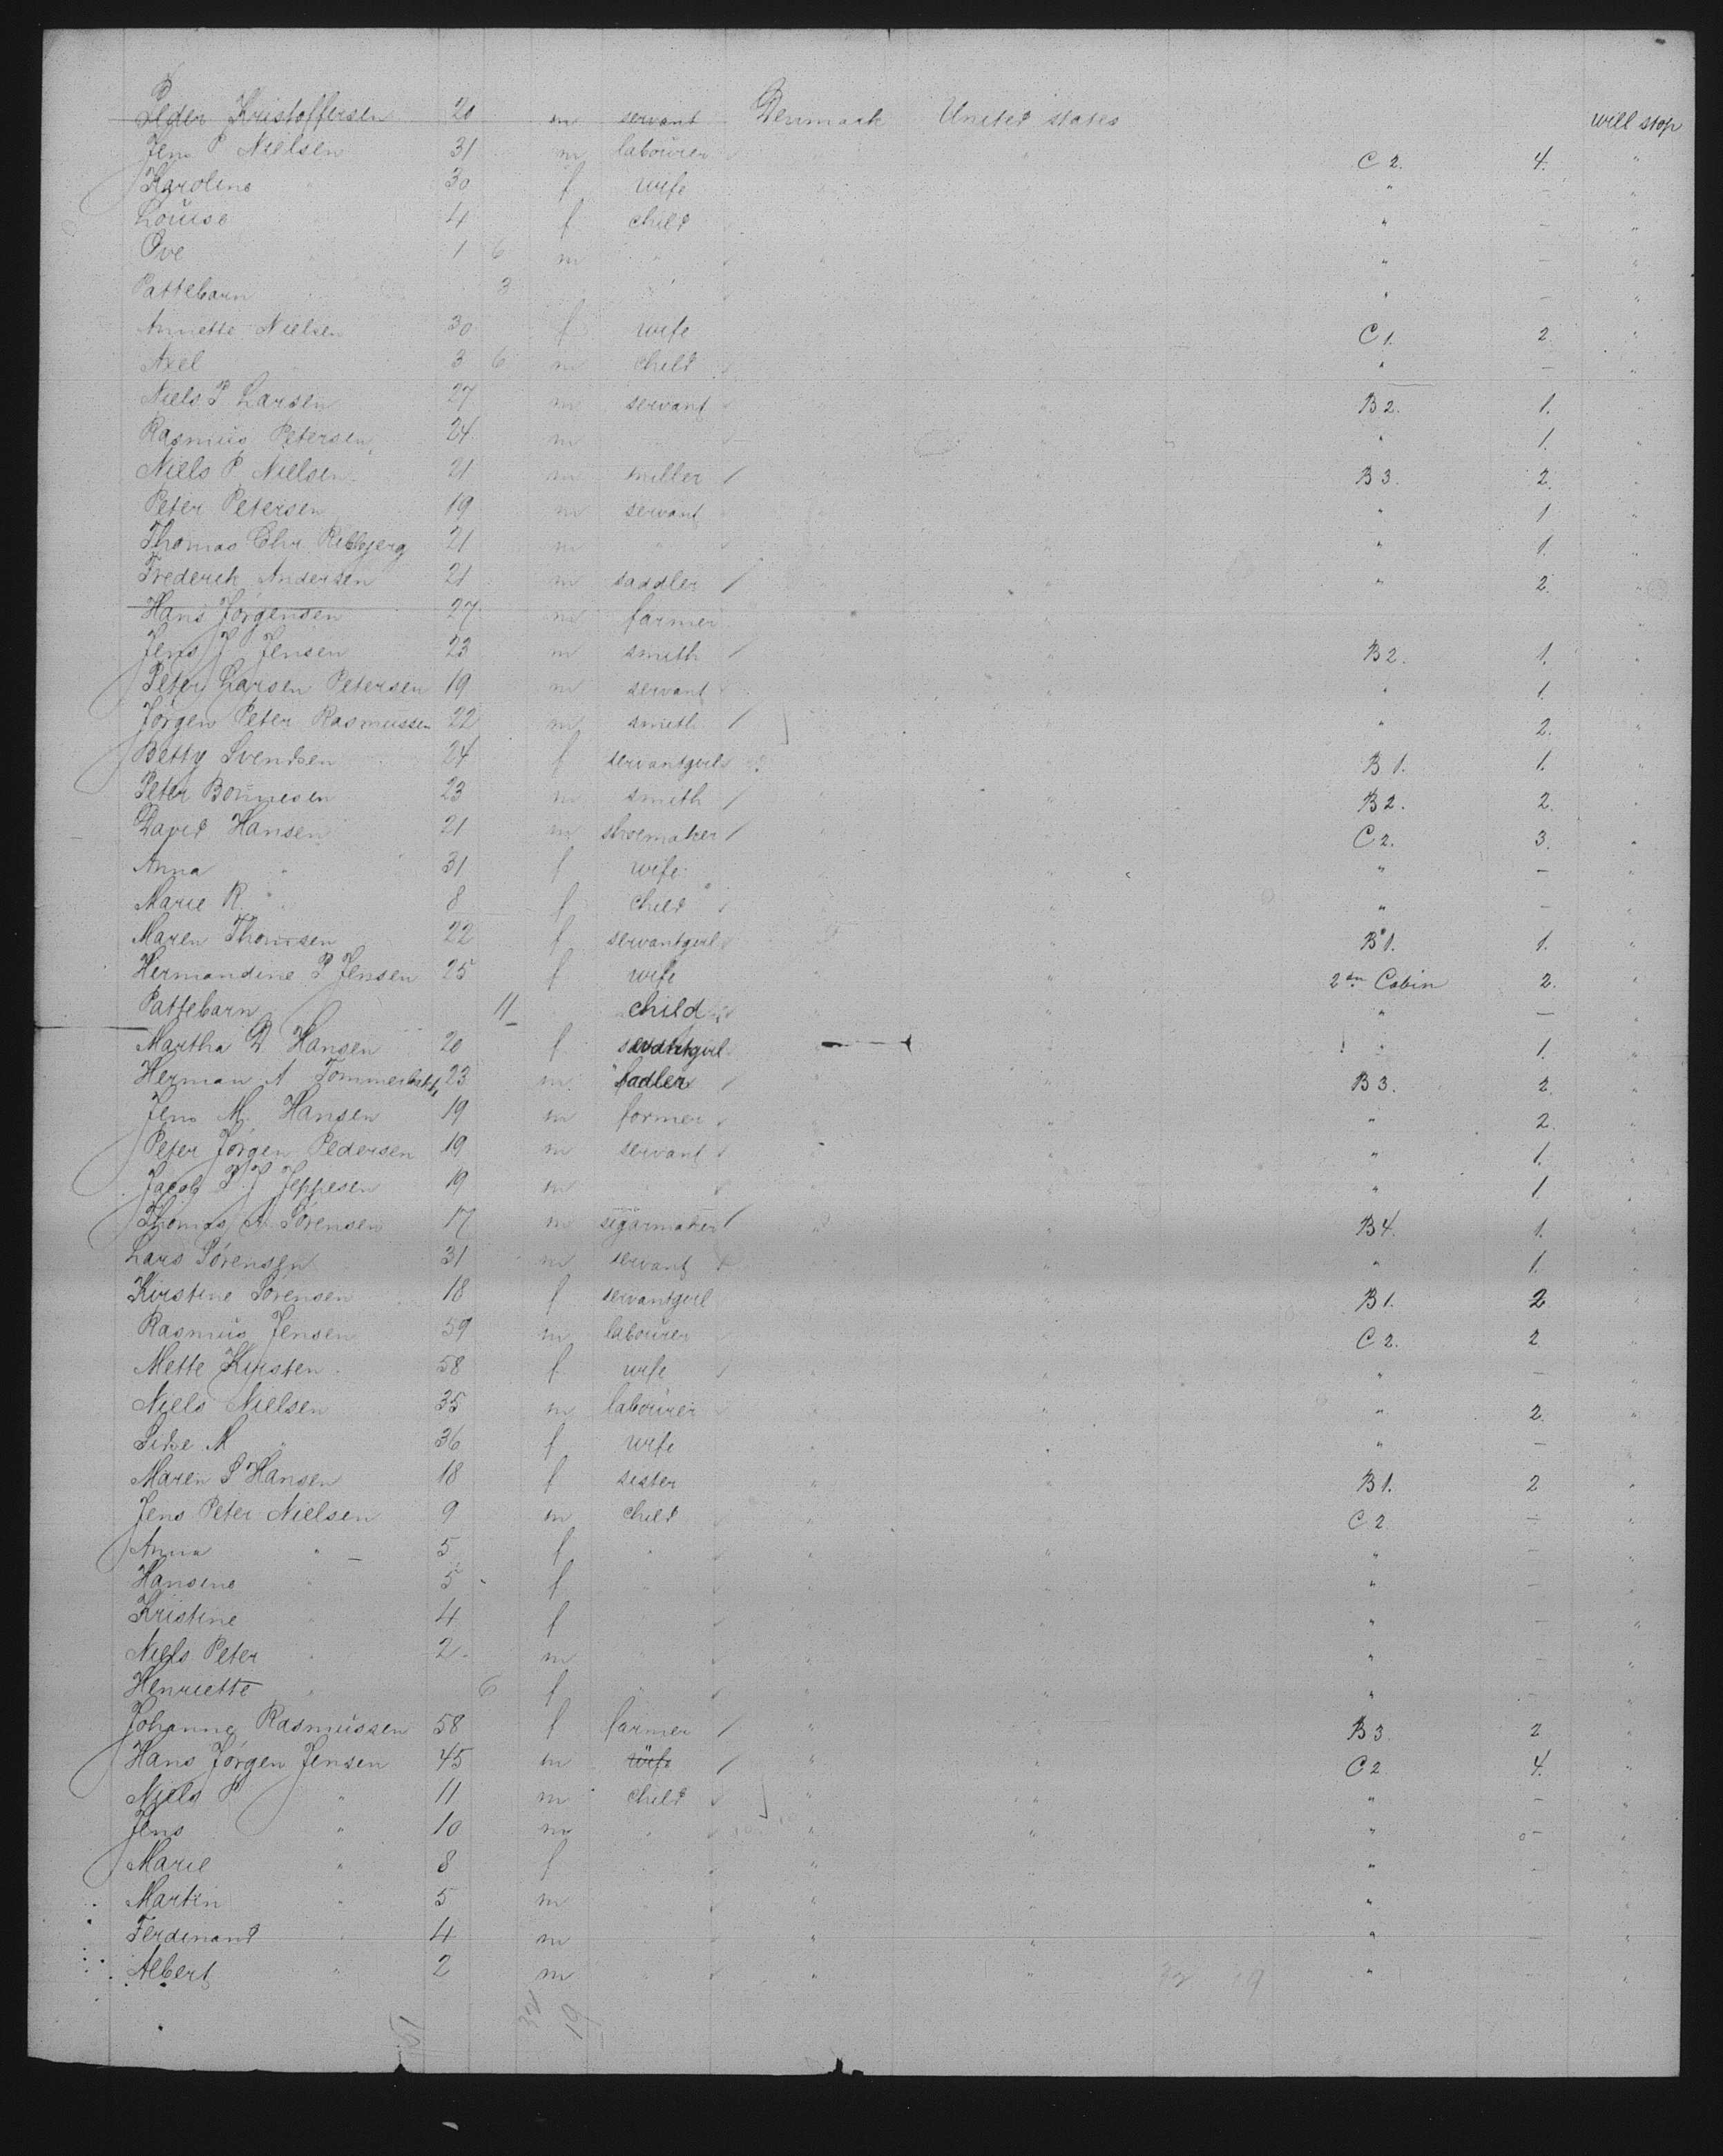 Peder Kristoffersen 20 m servant Denmark United states will stop
Jens P Nielsen 31 m labourer " " C 2. 4. "
Karoline " 30 f wife " " " – "
Louise " 4 f child " " " – "
Ove " 1 6 m " " " " – "
Pattebarn " 3 " " " " – "
Annette Nielsen 30 f wife " " C 1. 2. "
Axel " 3 6 m child " " " – "
Niels P Larsen 27 m servant " " B 2. 1. "
Rasmus Petersen 24 m " " " " 1. "
Niels P. Nielsen 21 m miller " " B 3. 2. "
Peter Petersen 19 m servant " " " 1 "
Thomas Chr. 21 m " " " " 1. "
Frederich Andersen 21 m saddler " " " 2. "
Hans Jørgensen 27 m farmer " " "
Jens J Jensen 23 m smith " " B 2. 1. "
Peter Larsen Petersen 19 m servant " " " 1. "
Jørgen Peter Rasmussen 22 m smith " " " 2. "
Betty Svendsen 24 f servantgirl " " B 1. 1. "
Peter Bonnesen 23 m smith " " B 2. 2. "
David Hansen 21 m shoemaker " " C 2. 3. "
Anna " 31 f wife " " " – "
Marie R. " 8 f child " " " – "
Maren Thomsen 22 f servantgirl " " B 1. 1. "
Hermandine P. Jensen 25 f wife " " 2 Cabin 2. "
Pattebarn 11 child " " " – "
Martha D. Hansen 20 f servantgirl " " 1. "
Herman A 23 m sadler " " B 3. 2. "
Jens M. Hansen 19 m former " " " 2. "
Peter Jørgen Pedersen 19 m servant " " " 1. "
Jacob P. J Jeppesen 19 m " " " " 1. "
Thomas A. Sørensen 17 m segarmaker " " B 4. 1. "
Lars Sørensen 31 m servant " " " 1. "
Kirstine Sørensen 18 f servantgirl " " B 1. 2 "
Rasmus Jensen 59 m labourer " " C 2. 2 "
Mette Kirsten 58 f wife " " " – "
Niels Nielsen 35 m labourer " " " 2. "
M " 36 f wife " " " – "
Maren S Hansen 18 f sister " " B 1. 2 "
Jens Peter Nielsen 9 m child " " C 2 – "
Anna " 5 f " " " " – "
Hansine " 5 f " " " " – "
Kristine " 4 f " " " " – "
Niels Peter " 2 m " " " " – "
Henriette " 6 f " " " " – "
Johanne Rasmussen 58 f farmer " " B 3 2 "
Hans Jørgen Jensen 45 m wife " " C 2 4. "
Niels P " 11 m child " " " – "
Jens " 10 m " " " " – "
Marie " 8 f " " " " – "
Martin " 5 m " " " " – "
Ferdinand " 4 m " " " " – "
Albert " 2 m " " " " – "